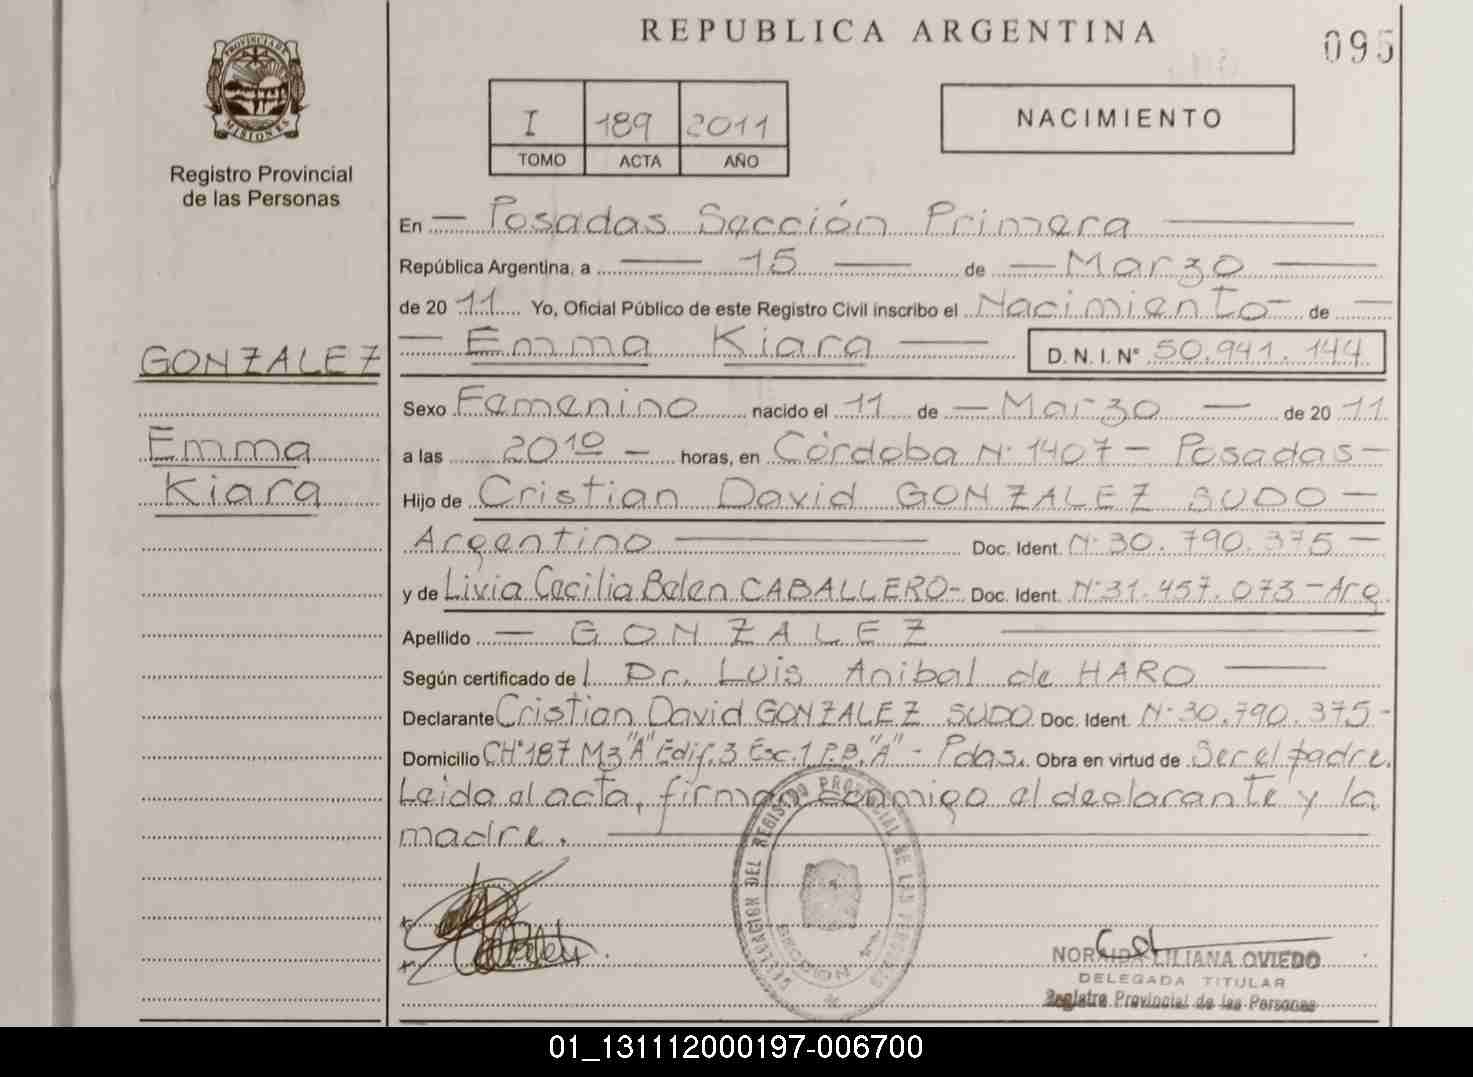 REPUBLICA ARGENTINA
095
PROVINCIA DE
MISIONES
Registro Provincial
de las Personas
I 189 2011
TOMO ACTA AÑO
NACIMIENTO
En — Posadas Sección Primera —
República Argentina, a — 15 — de — Marzo —
de 20 11 Yo, Oficial Público de este Registro Civil inscribo el Nacimiento — de —
— Emma Kiara — D. N. I. Nº 50.941.144
GONZALEZ
Emma
Kiara
Sexo Femenino nacido el 11 de — Marzo — de 20 11
a las 20:10 — horas, en Córdoba Nº 1407 — Posadas —
Hijo de Cristian David GONZALEZ SUDO —
Argentino — Doc. Ident. Nº 30.790.375 —
y de Livia Cecilia Belen CABALLERO - Doc. Ident. Nº 31.457.073 - Arg.
Apellido — GONZALEZ —
Según certificado de Dr. Luis Anibal de HARO —
Declarante Cristian David GONZALEZ SUDO Doc. Ident. Nº 30.790.375 -
Domicilio CHº187 Mz "A" Edif. 3 Esc. 1 P.B. "A" - Pdas. Obra en virtud de Ser el padre.
Leida el acta, firman conmigo el declarante y la
madre. —
DELEGACION DEL REGISTRO PROVINCIAL DE LAS PERSONAS
SECCION 1ra
NORAIDA LILIANA OVIEDO
DELEGADA TITULAR
Registro Provincial de las Personas
01_131112000197-006700